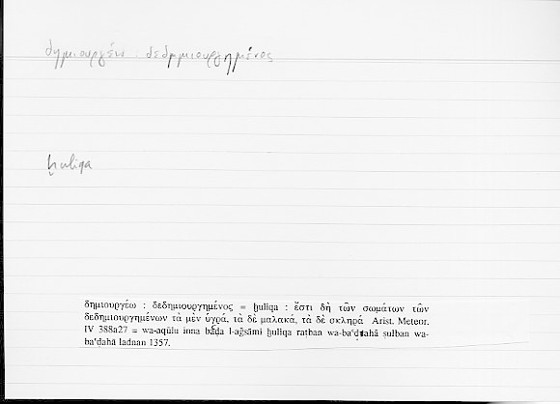 δημιουργέω : δεδημιουργημένος
ḫuliqa
δημιουργέω : δεδημιουργημένος = ḫuliqa : ἔστι δὴ τῶν σωμάτων τῶν
δεδημιουργημένων τὰ μὲν ὑγρά, τὰ δὲ μαλακά, τὰ δὲ σκληρά Arist. Meteor.
IV 388a27 = wa-aqūlu inna baʿḍa l-aǧsāmi ḫuliqa raṭban wa-baʿḍahā ṣulban wa-
baʿḍahā ladnan 1357.